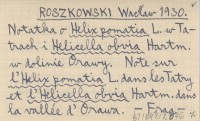 ROSZKOWSKI Wacław 1930.
Notatka o Helix pomatia L. w Ta-
trach i Helicella obvia Hartm.
w dolinie Orawy. Note sur
l'Helix pomatia L. dans les Tatry
et l'Helicella obvia Hartm. dans
la vallée d'Orawa. – Frag –